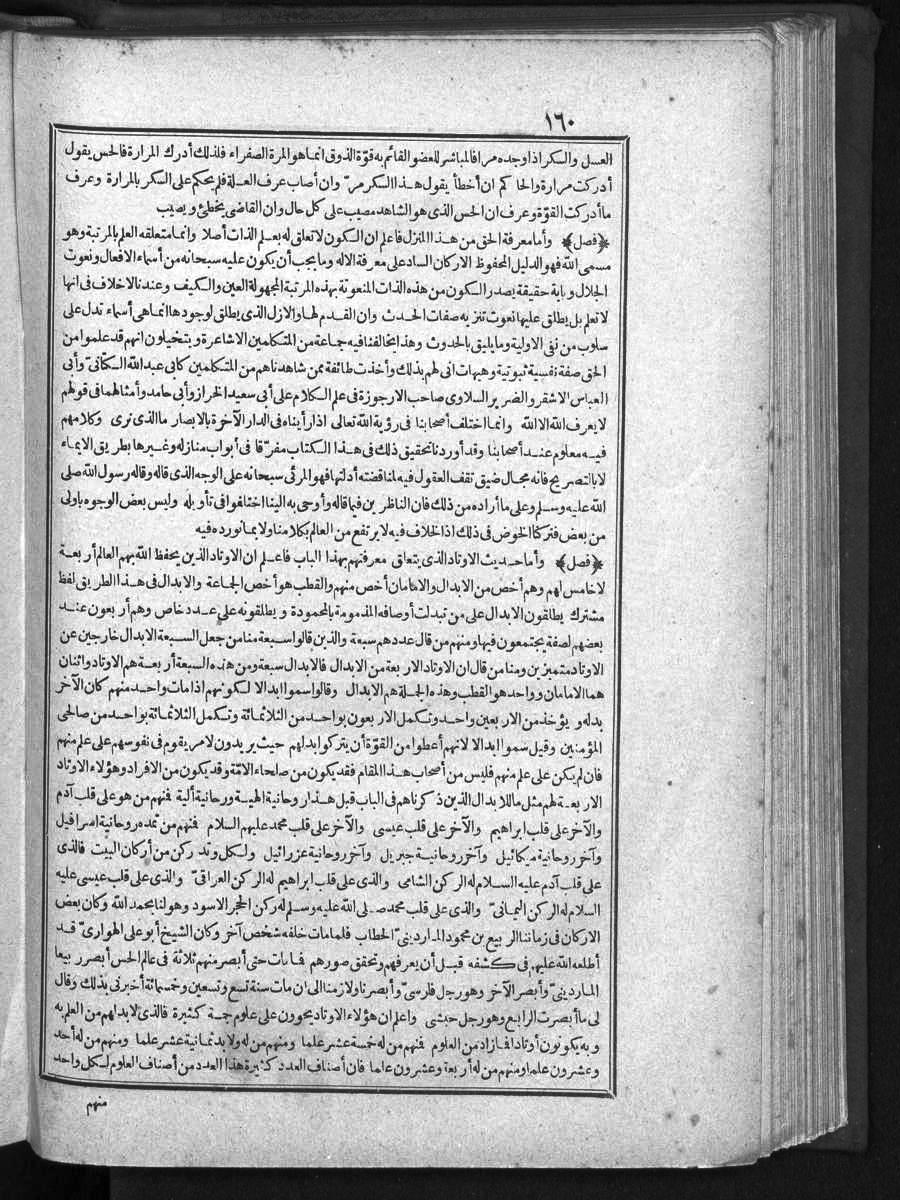 ١٦٠
العسل والسكر اذا وجده مرا فالمباشر للعضو القائم به قوة الذوق انما هو المرة الصفراء فلذلك أدرك المرارة فالحس يقول
أدركت مرارة والحاكم ان أخطأ يقول هذا السكر مرّ وان أصاب عرف العلة فلم يحكم على السكر بالمرارة وعرف
ما أدركت القوّة وعرف ان الحس الذى هو الشاهد مصيب على كل حال وان القاضى يخطئ ويصيب
﴿فصل﴾ وأما معرفة الحق من هذا المنزل فاعلم ان الكون لا تعلق له بعلم الذات أصلا وانما متعلقه العلم بالمرتبة وهو
مسمى الله فهو الدليل المحفوظ الاركان الساد على معرفة الاله وما يجب أن يكون عليه سبحانه من أسماء الافعال ونعوت
الجلال وباية حقيقة يصدر الكون من هذه الذات المنعوتة بهذه المرتبة المجهولة العين والكيف وعندنا لاخلاف فى انها
لا تعلم بل يطلق عليها نعوت تنزيه صفات الحدث وان القدم لها والازل الذى يطلق لوجودها انما هى أسماء تدل على
سلوب من نفى الاولية وما يليق بالحدوث وهذا يخالفنا فيه جماعة من المتكلمين الاشاعرة ويتخيلون انهم قد علموا من
الحق صفة نفسية ثبوتية وهيهات انى لهم بذلك وأخذت طائفة ممن شاهدناهم من المتكلمين كابى عبد الله الكتّانى وأبى
العباس الاشقر والضرير السلاوى صاحب الارجوزة فى علم الكلام على أبى سعيد الخراز وأبى حامد وأمثالهما فى قولهم
لا يعرف الله الا الله وانما اختلف أصحابنا فى رؤية الله تعالى اذا رأيناه فى الدار الآخرة بالابصار ما الذى نرى وكلامهم
فيه معلوم عند أصحابنا وقد أوردنا تحقيق ذلك فى هذا الكتاب مفرّقا فى أبواب منازله وغيرها بطريق الايماء
لا بالتصريح فانه مجال ضيق تقف العقول فيه لمناقضته أدلتها فهو المرئى سبحانه على الوجه الذى قاله وقاله رسول الله صلى
الله عليه وسلم وعلى ما أراده من ذلك فان الناظرين فيما قاله وأوحى به الينا اختلفوا فى تأويله وليس بعض الوجوه باولى
من بعض فتركنا الخوض فى ذلك اذ الخلاف فيه لا يرتفع من العالم بكلامنا ولا بما نورده فيه
﴿فصل﴾ وأما حديث الاوتاد الذى يتعلق معرفتهم بهذا الباب فاعلم ان الاوتاد الذين يحفظ الله بهم العالم أربعة
لا خامس لهم وهم أخص من الابدال والامامان أخص منهم والقطب هو أخص الجماعة والابدال فى هذا الطريق لفظ
مشترك يطلقون الابدال على من تبدلت أوصافه المذمومة بالمحمودة ويطلقونه على عدد خاص وهم أربعون عند
بعضهم لصفة يجتمعون فيها ومنهم من قال عددهم سبعة والذين قالوا سبعة منا من جعل السبعة الابدال خارجين عن
الاوتاد متميزين ومنا من قال ان الاوتاد الاربعة من الابدال فالابدال سبعة ومن هذه السبعة أربعة هم الاوتاد واثنان
هما الامامان وواحد هو القطب وهذه الجملة هم الابدال وقالوا سموا ابدالا لكونهم اذا مات واحد منهم كان الآخر
بدله ويؤخذ من الاربعين واحد وتكمل الاربعون بواحد من الثلاثمائة وتكمل الثلاثمائة بواحد من صالحى
المؤمنين وقيل سموا ابدالا لانهم أعطوا من القوّة أن يتركوا بدلهم حيث يريدون لامر يقوم فى نفوسهم على علم منهم
فان لم يكن على علم منهم فليس من أصحاب هذا المقام فقد يكون من صلحاء الامّة وقد يكون من الافراد وهؤلاء الاوتاد
الاربعة لهم مثل ما للابدال الذين ذكرناهم فى الباب قبل هذا روحانية الهية وروحانية آلية فنهم من هو على قلب آدم
والآخر على قلب ابراهيم والآخر على قلب عيسى والآخر على قلب محمد عليهم السلام فنهم من تمده روحانية اسرافيل
وآخر روحانية ميكائيل وآخر روحانية جبريل وآخر روحانية عزرائيل ولكل وتد ركن من أركان البيت فالذى
على قلب آدم عليه السلام له الركن الشامى والذى على قلب ابراهيم له الركن العراقىّ والذى على قلب عيسى عليه
السلام له الركن اليمانىّ والذى على قلب محمد صلى الله عليه وسلم له ركن الحجر الاسود وهو لنا بحمد الله وكان بعض
الاركان فى زماننا الربيع بن محمود الماردينىّ الحطاب فلما مات خلفه شخص آخر وكان الشيخ أبو على الهوارىّ قد
أطلعه الله عليهم فى كشفه قبل أن يعرفهم وتحقق صورهم فما مات حتى أبصر منهم ثلاثة فى عالم الحس أبصر ربيعا
الماردينىّ وأبصر الآخر وهو رجل فارسىّ وأبصرنا ولازمنا الى ان مات سنة تسع وتسعين وخمسمائة أخبرنى بذلك وقال
لى ما أبصرت الرابع وهو رجل حبشى واعلم ان هؤلاء الاوتاد يحوون على علوم جمة كثيرة فالذى لا بد لهم من العلم به
وبه يكونون أوتادا فما زاد من العلوم فنهم من له خمسة عشر علما ومنهم من له ولا بد ثمانية عشر علما ومنهم من له أحد
وعشرون علما ومنهم من له أربعة وعشرون علما فان أصناف العدد كثيرة هذا العدد من أصناف العلوم لكل واحد
منهم